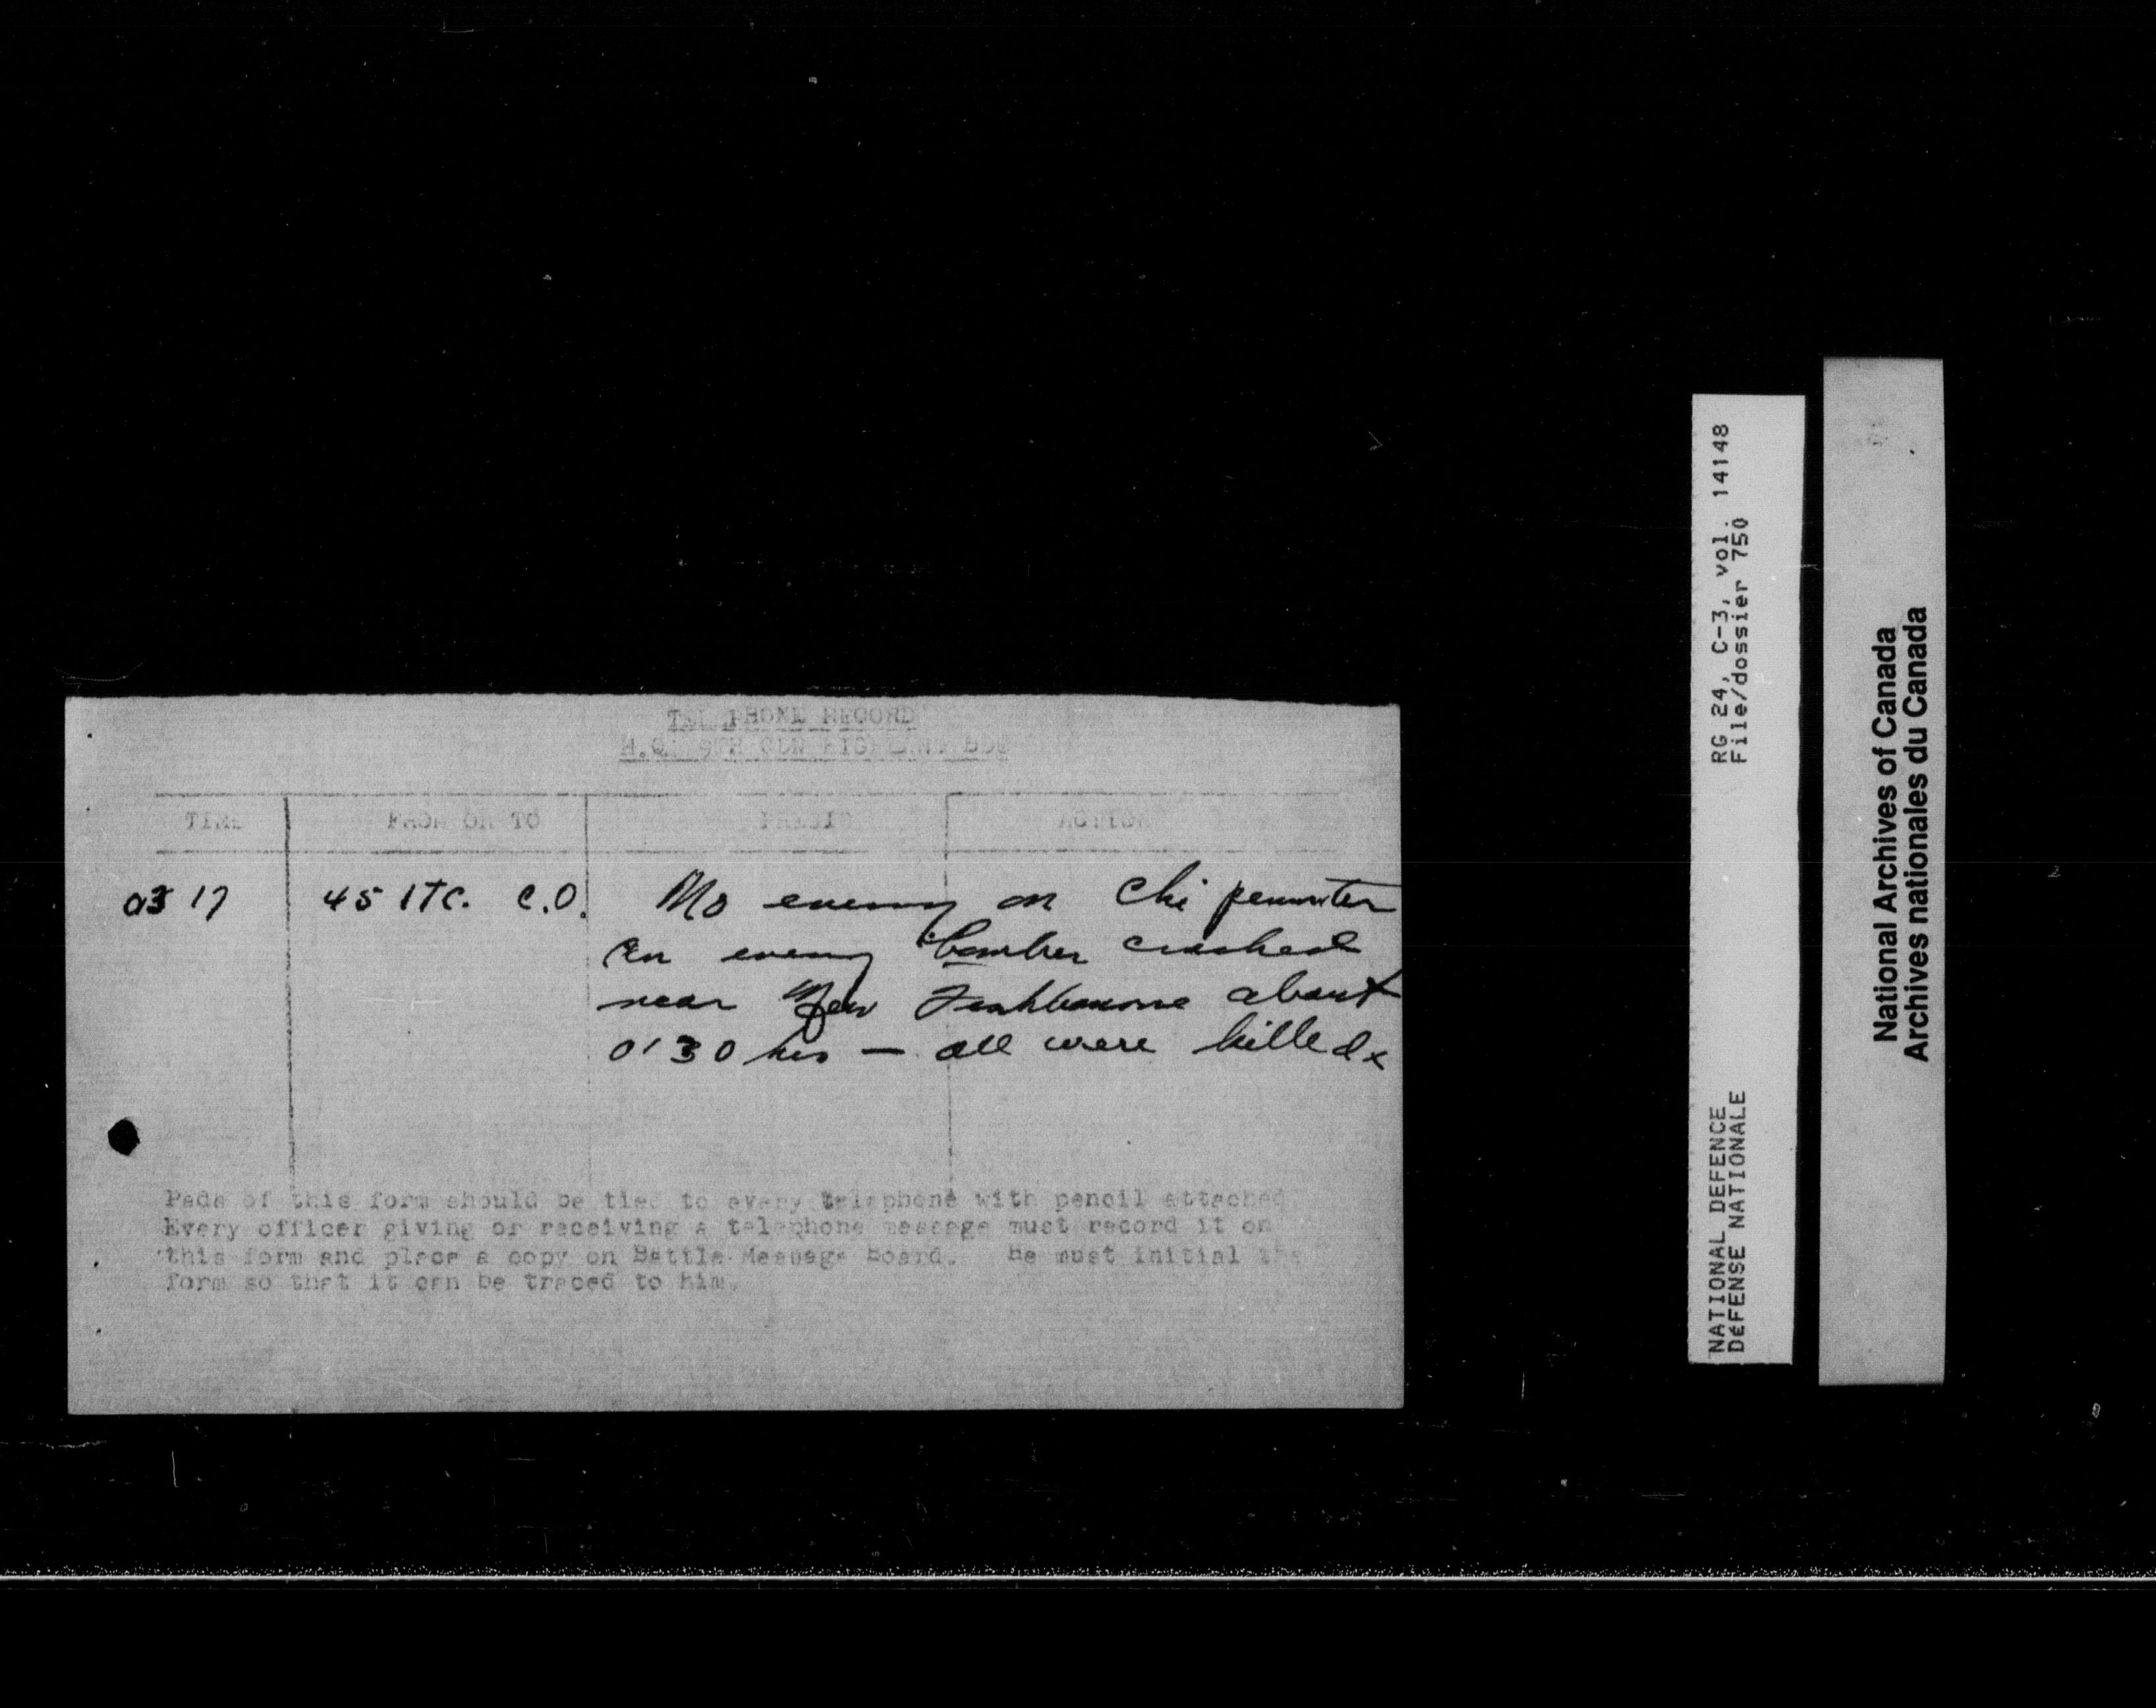 TELEPHONE RECORD
H.Q. 9TH CDN BDE
TIME FROM OR TO PRECIS ACTION
0317 45 ITC. C.O. No enemy on Chi perimeter
An enemy bomber crashed
near New about
0130 hrs — all were killed x
Pads of this form should be tied to every telephone with pencil attached
Every officer giving or receiving a telephone message must record it on
this form and place a copy on Battle Message Board. He must initial the
form so that it can be traced to him.
RG 24, C-3, vol. 14148
File/dossier 750
NATIONAL DEFENCE
DéFENSE NATIONALE
National Archives of Canada
Archives nationales du Canada